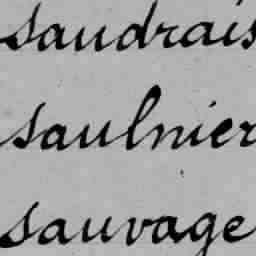 saudrais
saulnier
sauvage